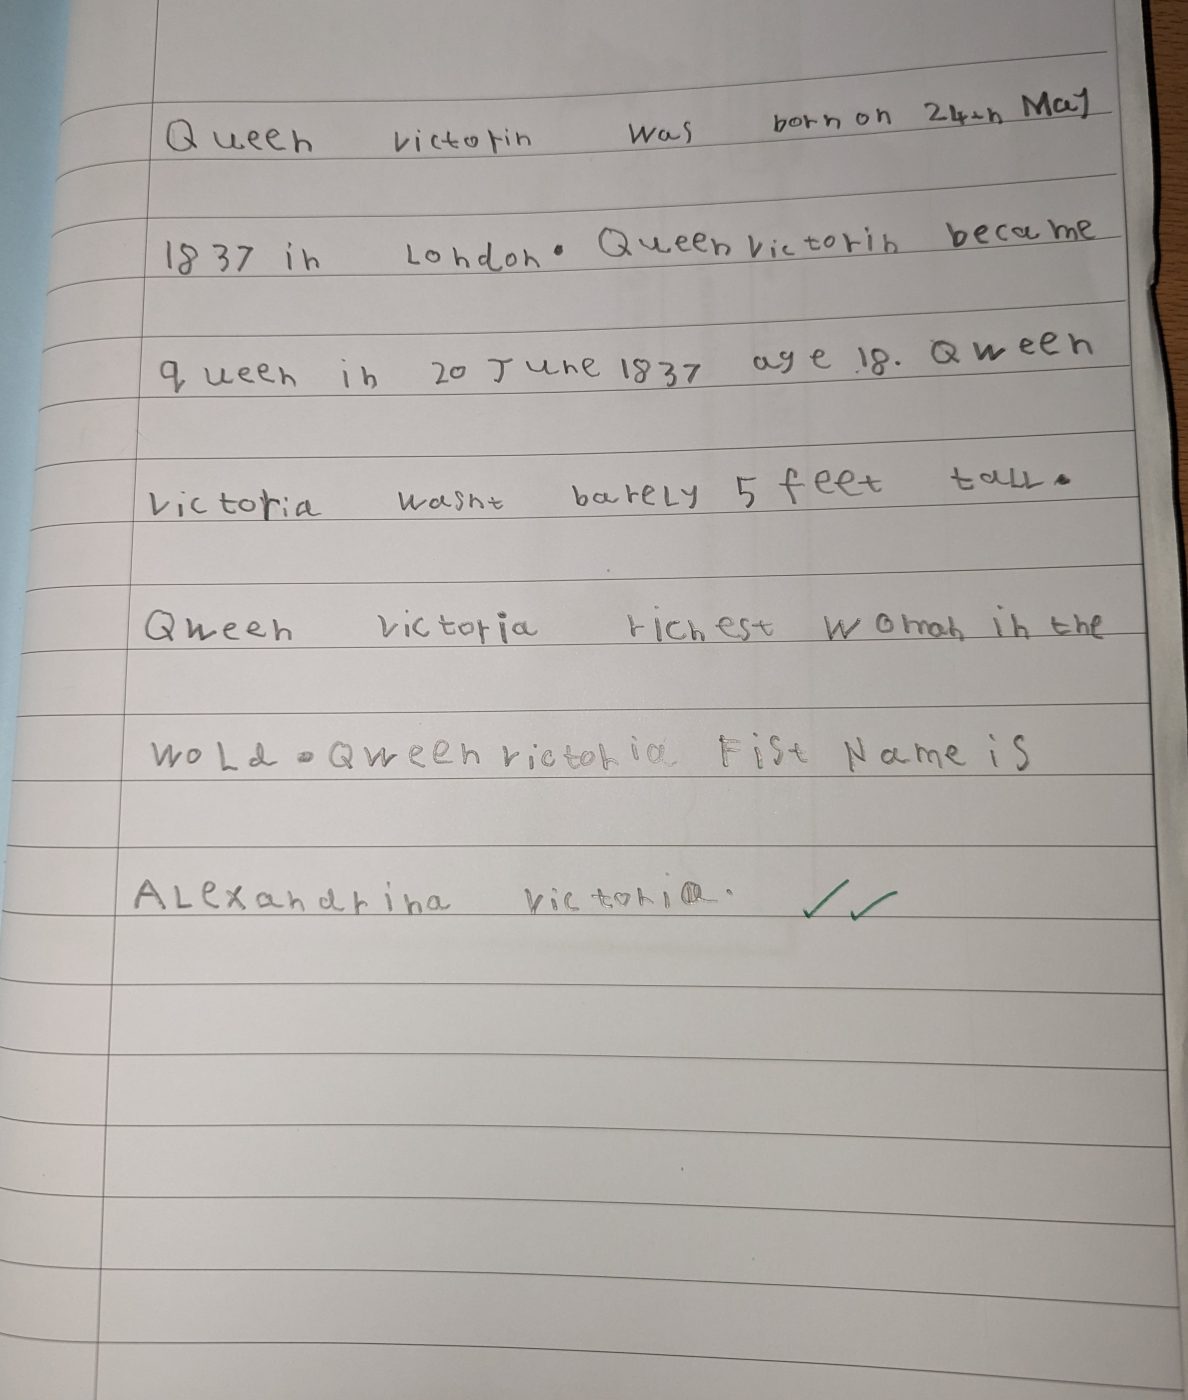 Queen victorin was born on 24th May
1837 in London. Queen victorin became
queen in 20 June 1837 age 18. Qween
victoria wasnt barely 5 feet tall.
Qween victoria richest woman in the
wold. Qween victoria Fist Name is
ALexandrina victoria.